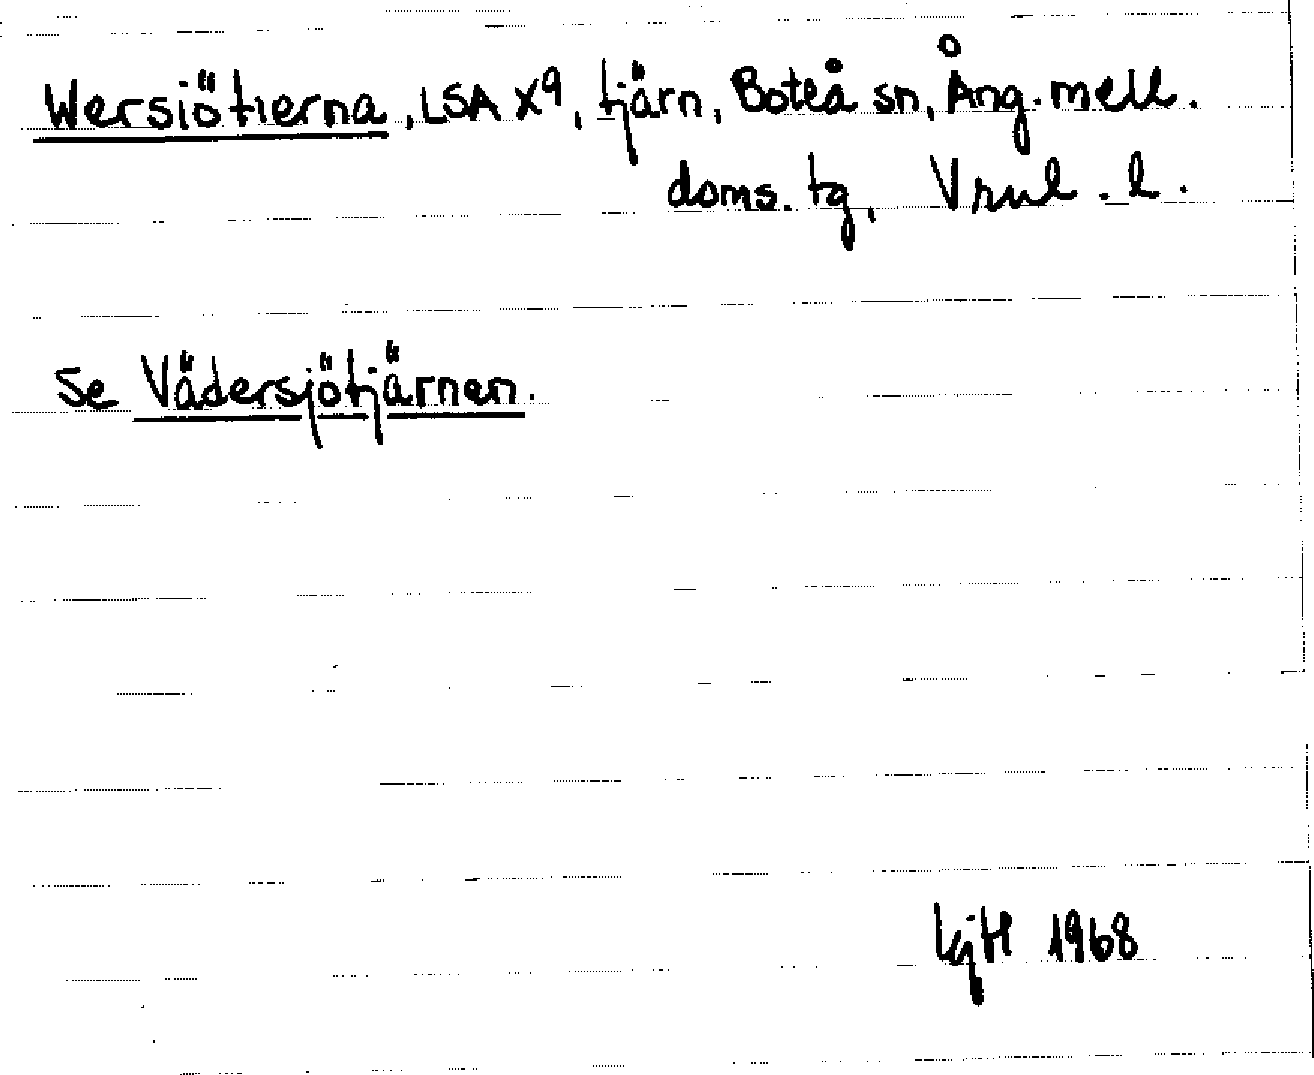 Wersiötierna, LSA X9, tjärn, Boteå sn, Ång. mell.
doms. tg,
Se Vädersjötjärnen.
1968